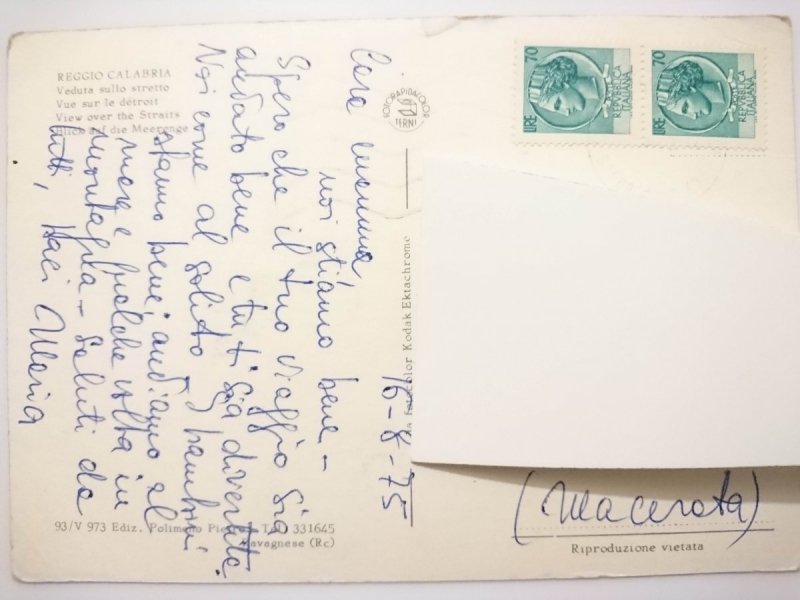 REGGIO CALABRIA
Veduta sullo stretto
Vue sur le détroit
View over the Straits
Blick auf die Meerenge
FOTORAPIDACOLOR
TERNI
70
LIRE
REPUBBLICA
ITALIANA
70
LIRE
REPUBBLICA
ITALIANA
16-8-75
Cara mamma
noi stiamo bene -
Spero che il tuo viaggio sia
andato bene e tu ti sia divertita.
Noi come al solito I bambini
stanno bene, andiamo al
mare e qualche volta in
montagna - Saluti da
tutti, Baci Maria
(Macerata)
Fotocolor Kodak Ektachrome
93/V 973 Ediz. Polimeno Tel. 331645
(Rc)
Riproduzione vietata